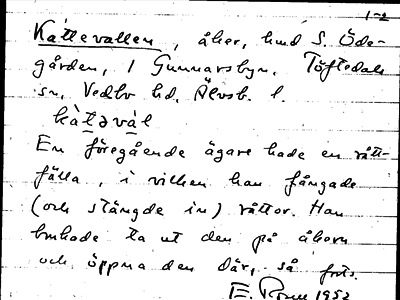 1-2
Kattevallen, åker, hmd S. Öde-
gården, 1 Gunnarsbyn. Töftedals
sn, Vedbo hd, Älvsb. l.
En föregående ägare hade en rått-
fälla, i vilken han fångade
(och stängde in) råttor. Han
brukade ta ut den på åkern
och öppna den där, så forts.
1952